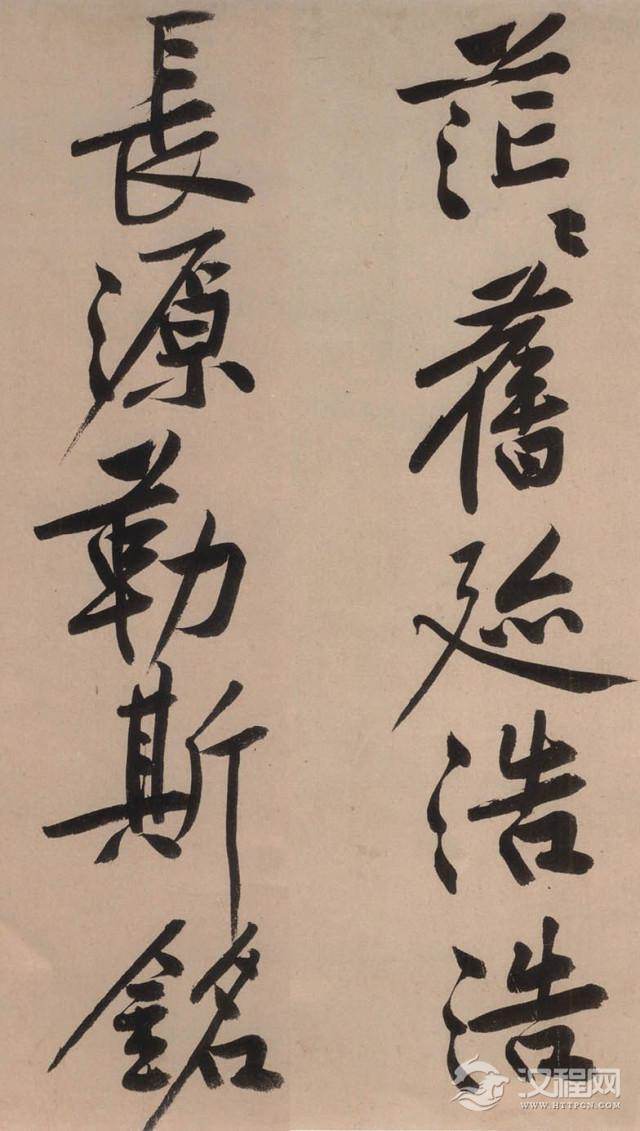 茫〻舊迹浩浩
長源勒斯銘
汉程网
WWW.HTTPCN.COM